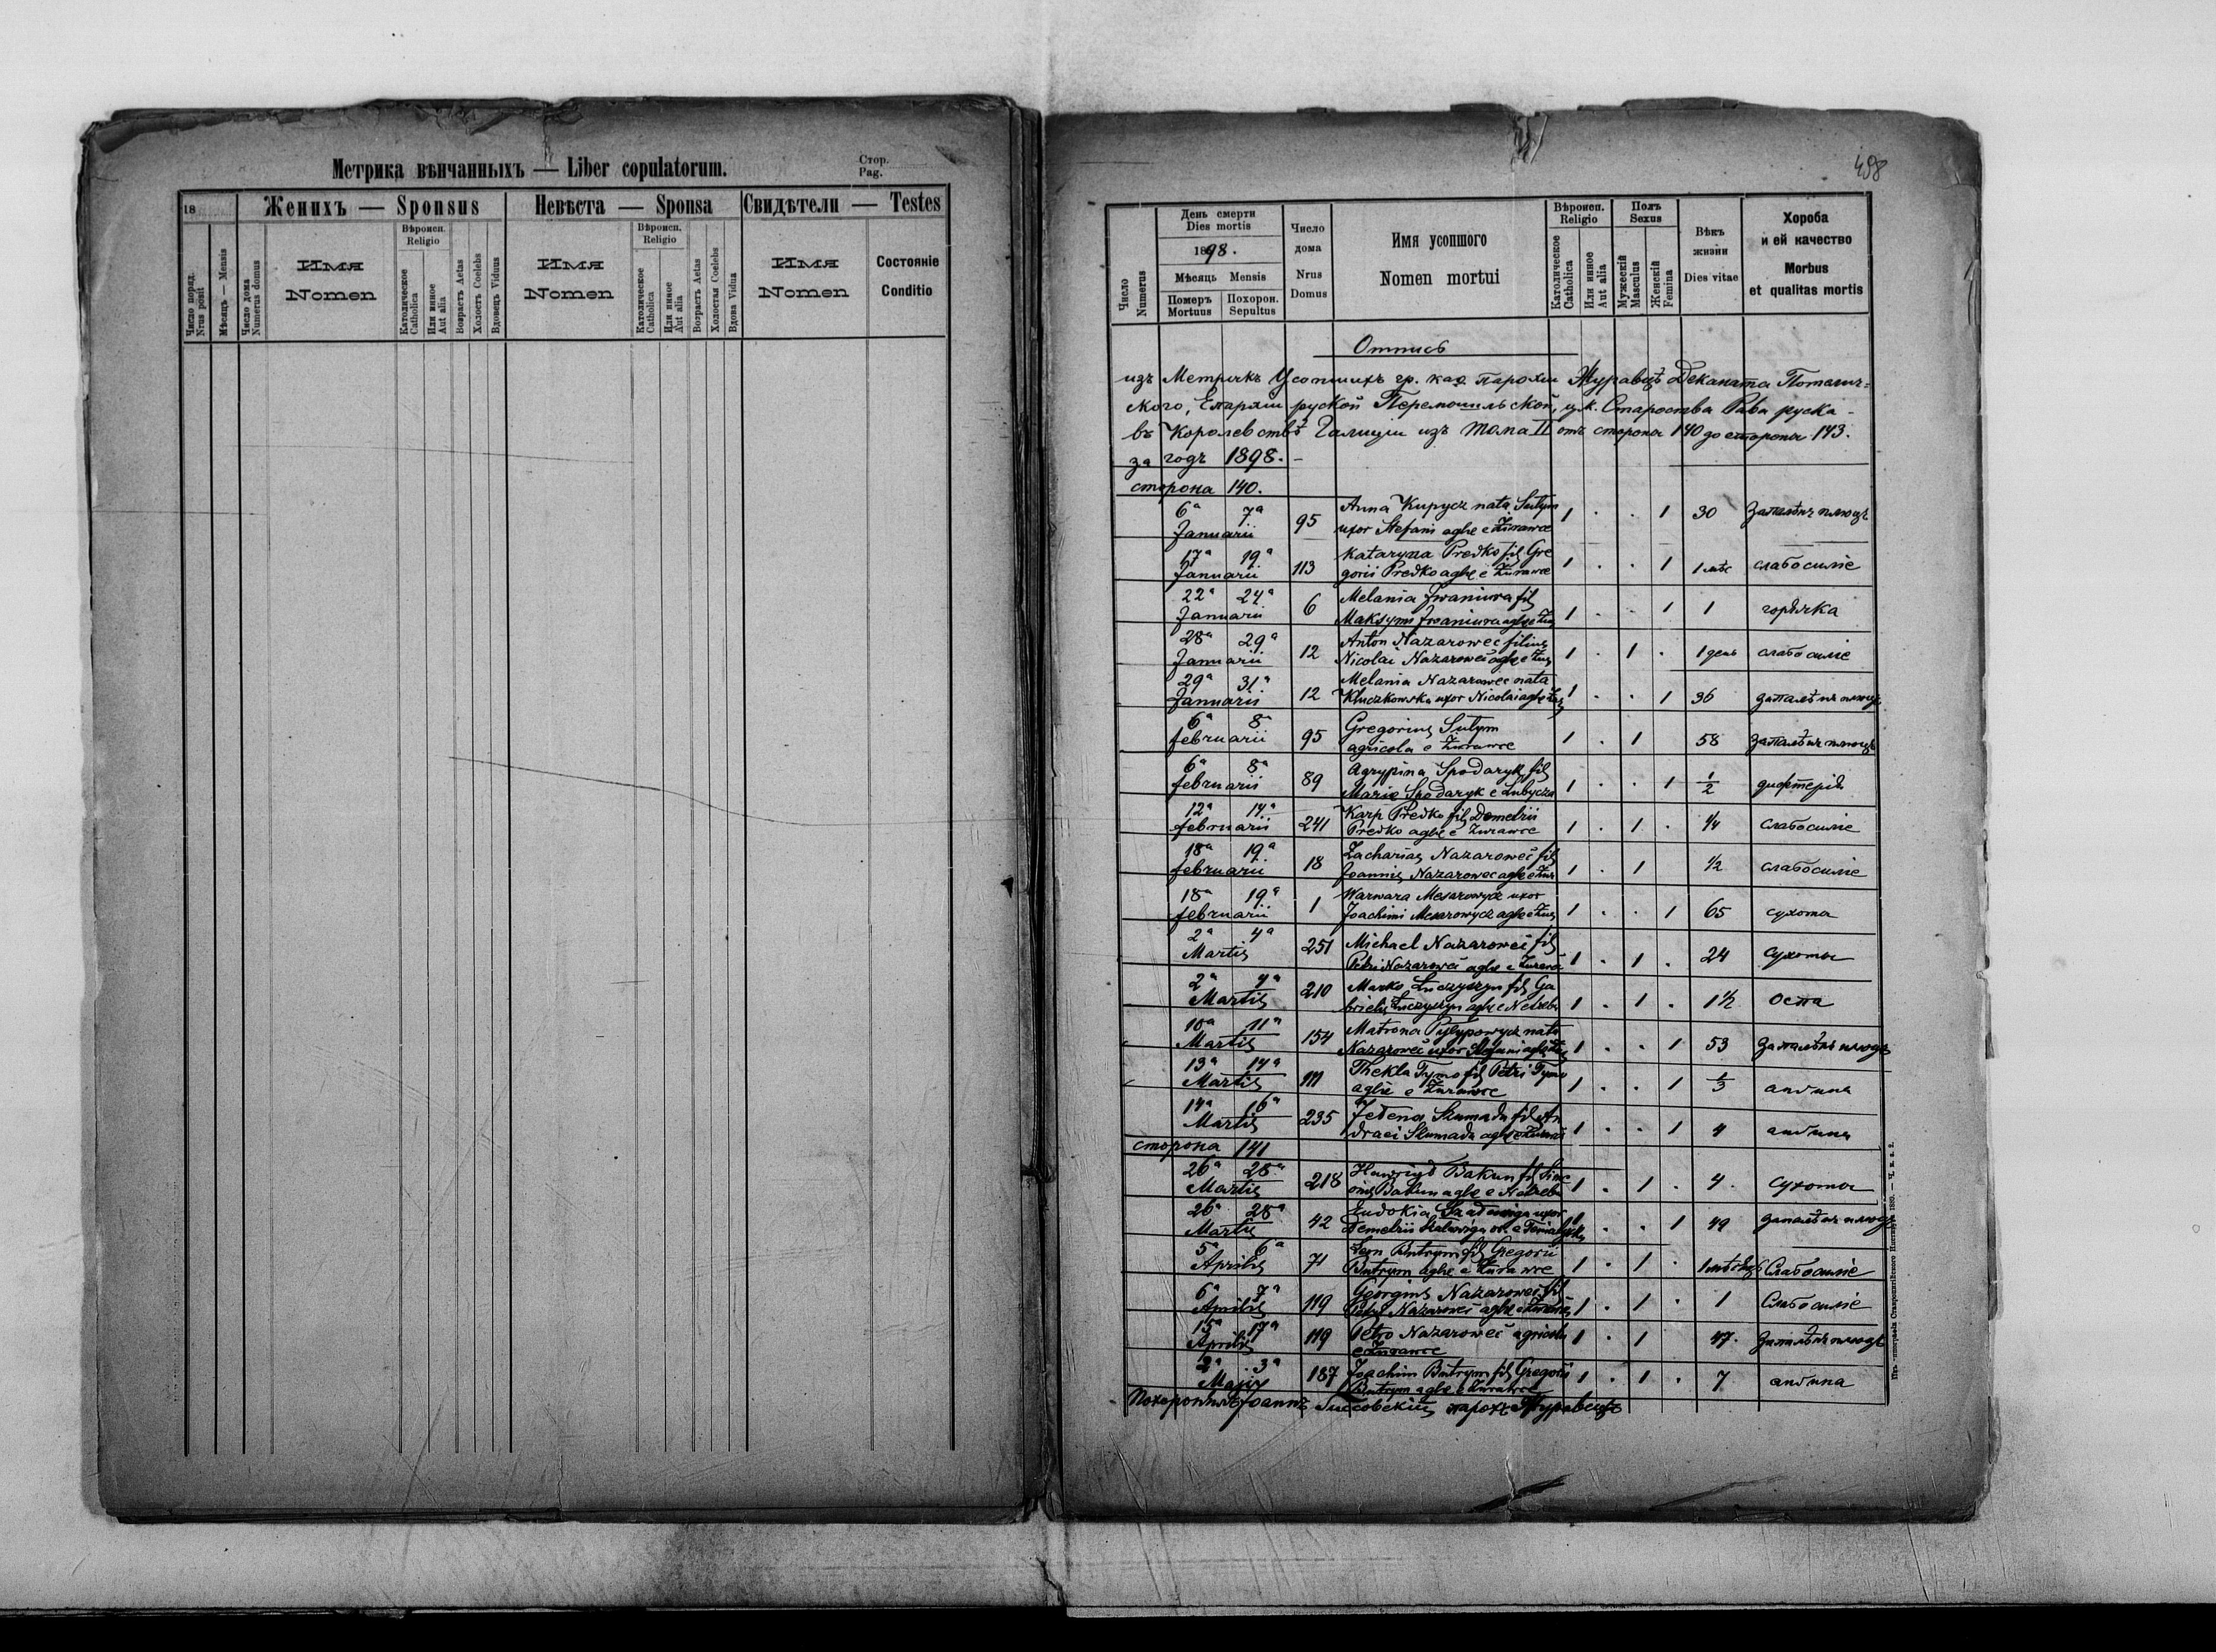 Метрика вѣнчанныхъ — Liber copulatorum.
Стор.
Pag.
18
Женихъ — Sponsus
Невѣста — Sponsa
Свидѣтели — Testes
Число поряд.
Nrus posit
Мѣсяць — Mensis
Число дома
Numerus domus
Имя
Nomen
Вѣроисп.
Religio
Католическое
Catholica
Или инное
Aut alia
Возрастъ Aetas
Холостъ Coelebs
Вдовецъ Viduus
Имя
Nomen
Вѣроисп.
Religio
Католическое
Catholica
Или инное
Aut alia
Возрастъ Aetas
Холостая Coelebs
Вдова Vidua
Имя
Nomen
Состояніе
Conditio
498
Число
Numerus
День смерти
Dies mortis
1898.
Мѣсяць Mensis
Померъ
Mortuus
Похорон.
Sepultus
Число
дома
Nrus
Domus
Имя усопшого
Nomen mortui
Вѣроисп.
Religio
Католическое
Catholica
Или инное
Aut alia
Полъ
Sexus
Мужескій
Masculus
Женскій
Femina
Вѣкъ
жизни
Dies vitae
Хороба
и ей качество
Morbus
et qualitas mortis
Отпись
изъ Метрикъ Усопшихъ гр. каѳ. Парохіи Журавцѣ Деканата Потелич-
ского, Епархіи руской Перемышльской, ц.к. Староства Рава руска -
въ Королевствѣ Галиціи изъ Тома II отъ стороны 140 до стороны 143.
за годъ 1898. -
сторона 140.
6ª 7ª Januarii 95 Anna Kupycz nata Sutym 1 . . 1 30 Запалѣнье плюцъ
uxor Stefani aglae e Żurawce
17ª 19ª Januarii 113 Kataryna Predko fil Gre 1 . . 1 1 мѣс слабосиліе
gorii Predko aglae e Żurawce
22ª 24ª Januarii 6 Melania Iwaniura fil 1 . . 1 1 горячка
Maksym Iwaniura aglae e Żur
28ª 29ª Januarii 12 Anton Nazarowec filius 1 . 1 . 1 день слабосиліе
Nicolai Nazarowec aglae e Żur
29ª 31ª Januarii 12 Melania Nazarowec nata 1 . . 1 36 запалѣнье плюцъ
Kluczkowska uxor Nicolai aglae Żur
6ª 8ª februarii 95 Gregorius Sutym 1 . 1 58 запалѣнье плюцъ
agricola e Żurawce
6ª 8ª februarii 89 Agrypina Spodaryk fil 1 . . 1 1/2 дифтерія
Marie Spodaryk e Lubycza
12ª 14ª februarii 241 Karp Predko fil Demetrii 1 . 1 . 1/4 слабосиліе
Predko aglae e Żurawce
18ª 19ª februarii 18 Zacharias Nazarowec fil 1 . 1 1/2 слабосиліе
Joannis Nazarowec aglae e Żur
18ª 19ª februarii 1 Warwara Mesarowycz uxor 1 . . 1 65 сухота
Joachimi Mesarowycz aglae e Żur
2ª 4ª Martis 251 Michael Nazarowec fil 1 . 1 . 24 сухоты
Petri Nazarowec aglae e Żuraw
2ª 4ª Martis 210 Marko Łuczyszyn fil Ga 1 . 1 . 1 1/2 оспа
brielis Łuczyszyn aglae e
10ª 11ª Martis 154 Matrona Pylypowycz nata 1 . . 1 53 запалѣнье плюцъ
Nazarowec uxor Stefani aglae Żur
13ª 14ª Martis 111 Thekla Tymo fil Petri Tymo 1 . . 1 1/3 ангина
aglae e Żurawce
14ª 16ª Martis 235 Fedena Szumada fil An 1 . . 1 4 ангина
draei Szumada aglae e Żuraw
сторона 141
26ª 28ª Martis 218 Bakun fil Sime 1 . 1 . 4 . сухоты
onis Bakun aglae e
26ª 28ª Martis 42 Eudokia uxor 1 . . 1 49 запалѣнье плюцъ
Demetrii
5ª 6ª Aprilis 71 Leon Butrym fil Gregorii 1 . 1 . 1 мѣсяцъ Слабосиліе
Butrym aglae e Żurawce
6ª 7ª Aprilis 119 Georgius Nazarowec fil 1 . 1 . 1 Слабосиліе
Petri Nazarowec aglae e Żurawce
15ª 17ª Aprilis 119 Petro Nazarowec agricola 1 . 1 47. запалѣнье плюцъ
e Żurawce
2ª 3ª Majis 187 Joachim Butrym fil Gregorii 1 . 1 . 7 ангина
Butrym aglae e Żurawce
Похоронилъ Іоаннъ парохъ Журавецкій